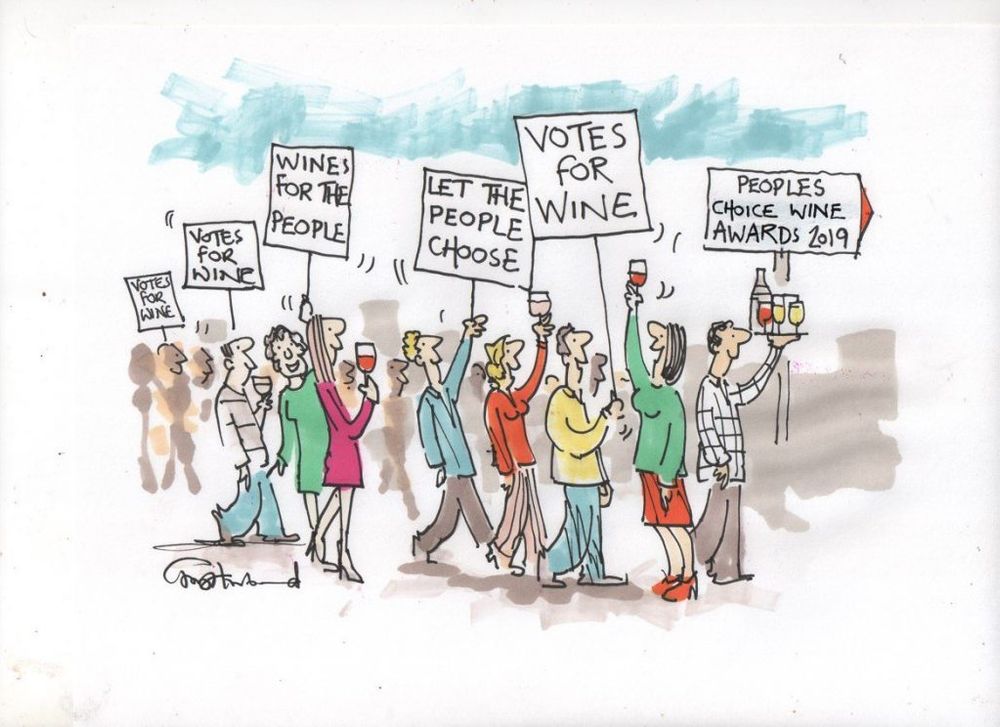 VOTES
FOR
WINE
VOTES
FOR
WINE
WINES
FOR THE
PEOPLE
LET THE
PEOPLE
CHOOSE
VOTES
FOR
WINE
PEOPLES
CHOICE WINE
AWARDS 2019